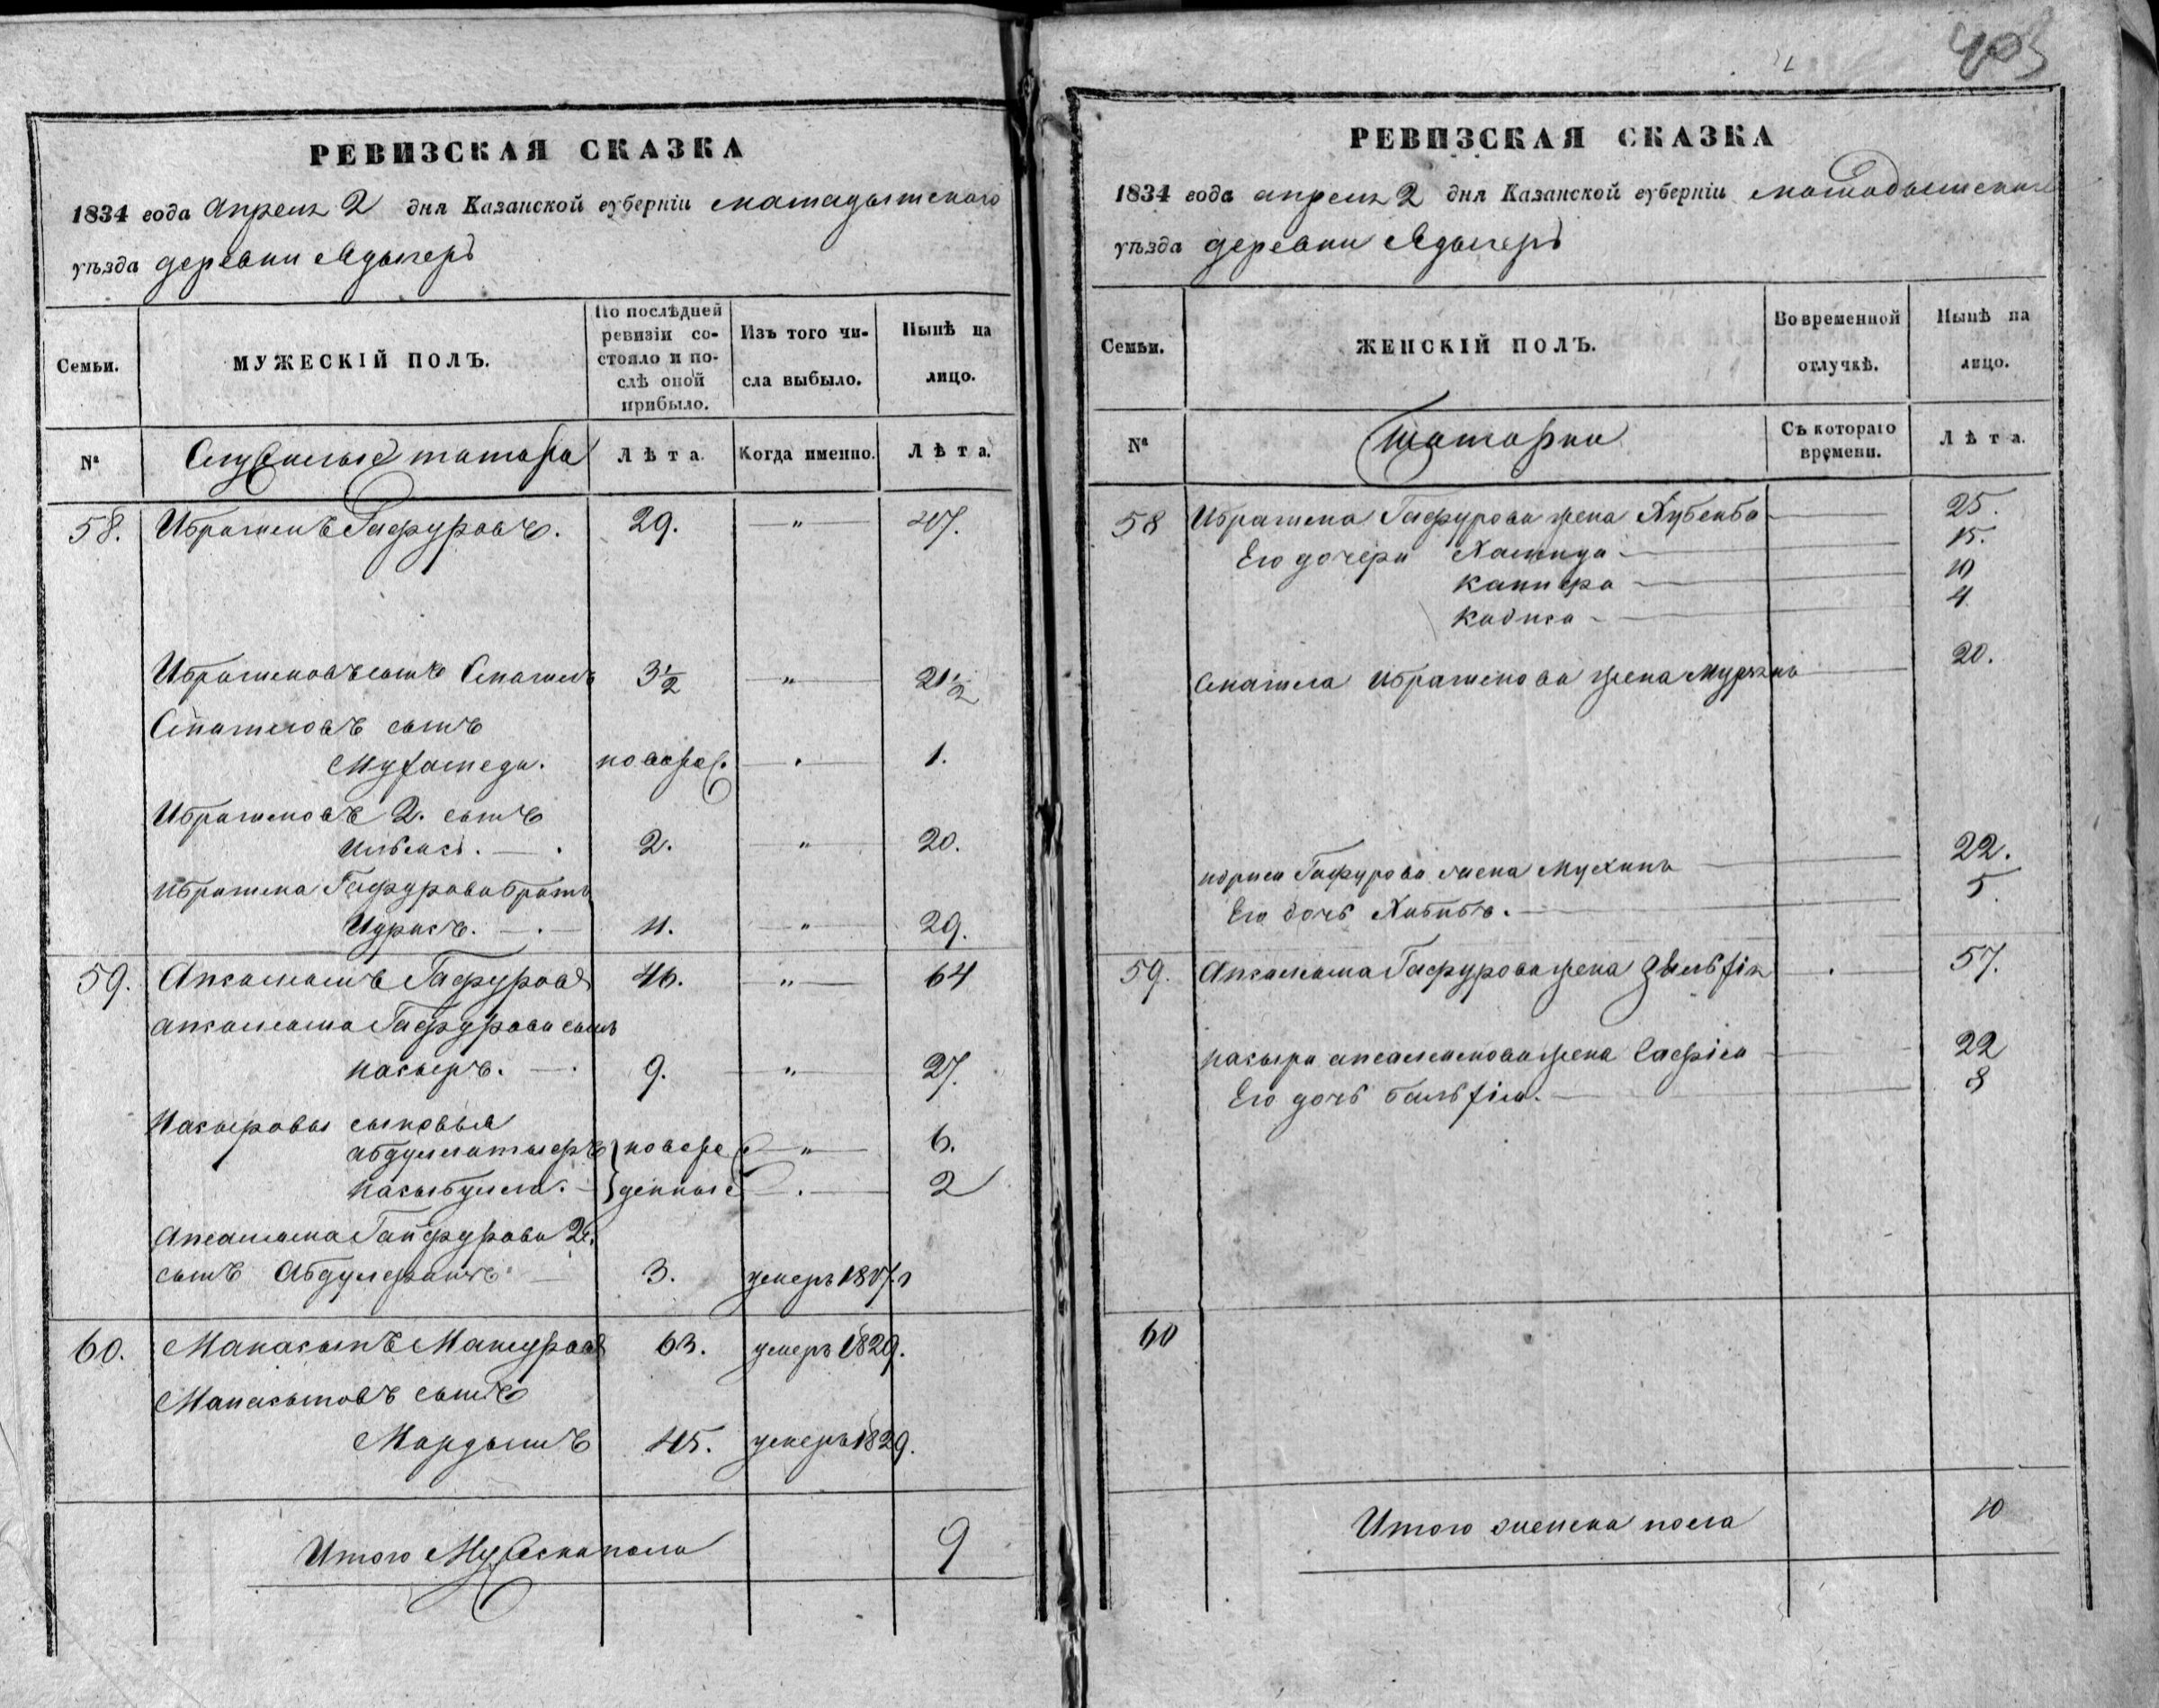 403
РЕВИЗСКАЯ СКАЗКА
1834 года апреля 2 дня Казанской губерніи мамадышского
уѣзда деревни Адаееръ
Семьи.
МУЖЕСКІЙ ПОЛЪ.
По послѣдней ревизіи состояло и послѣ оной прибыло.
Изъ того числа выбыло.
Нынѣ на лицо.
№
Служилые татара
Лѣта.
Когда именно.
Лѣта.
58. Ибрагимъ Гафуровъ. 29. — " — 47.
Ибрагимовъ сынъ Смагилъ 3½ — " — 21½
Смагиловъ сынъ
Мухамеди. новорож. — . — 1.
Ибрагимовъ 2. сынъ
2. — " — 20.
Ибрагима Гафурова братъ
Идрисъ. — . — 11. — " — 29.
59. Апсалямъ Гафуровъ 46. — " — 64
апсаляма Гафурова сынъ
насыръ. — . 9. — " — 27.
Насыровы сыновья
} новорож — " — 6.
насыбулла. — } денные — . — 2
Апсаляма Гайфурова 2й
сынъ — 3. умеръ 1817. г
60. Манасыпъ Мансуровъ 63. умеръ 1829.
Манасыповъ сынъ
45. умеръ 1829.
Итого Мужеска пола 9
РЕВИЗСКАЯ СКАЗКА
1834 года апреля 2 дня Казанской губерніи мамадышского
уѣзда деревни Адаееръ
Семьи.
ЖЕНСКІЙ ПОЛЪ.
Во временной отлучкѣ.
Нынѣ на лицо.
№
Татарки
Съ котораго времени.
Лѣта.
58 Ибрагима Гафурова жена Хубейба — 25.
Его дочери Хамида — 15.
— 10
— 4
Смагила Ибрагимова жена — 20.
идриса Гафурова жена — 22.
Его дочь Хабиба. — 5.
59. Апсаляма Гафурова жена — . — 57.
насыра апсалямова жена Сафія — 22
Его дочь — 8
60
Итого женска пола 10